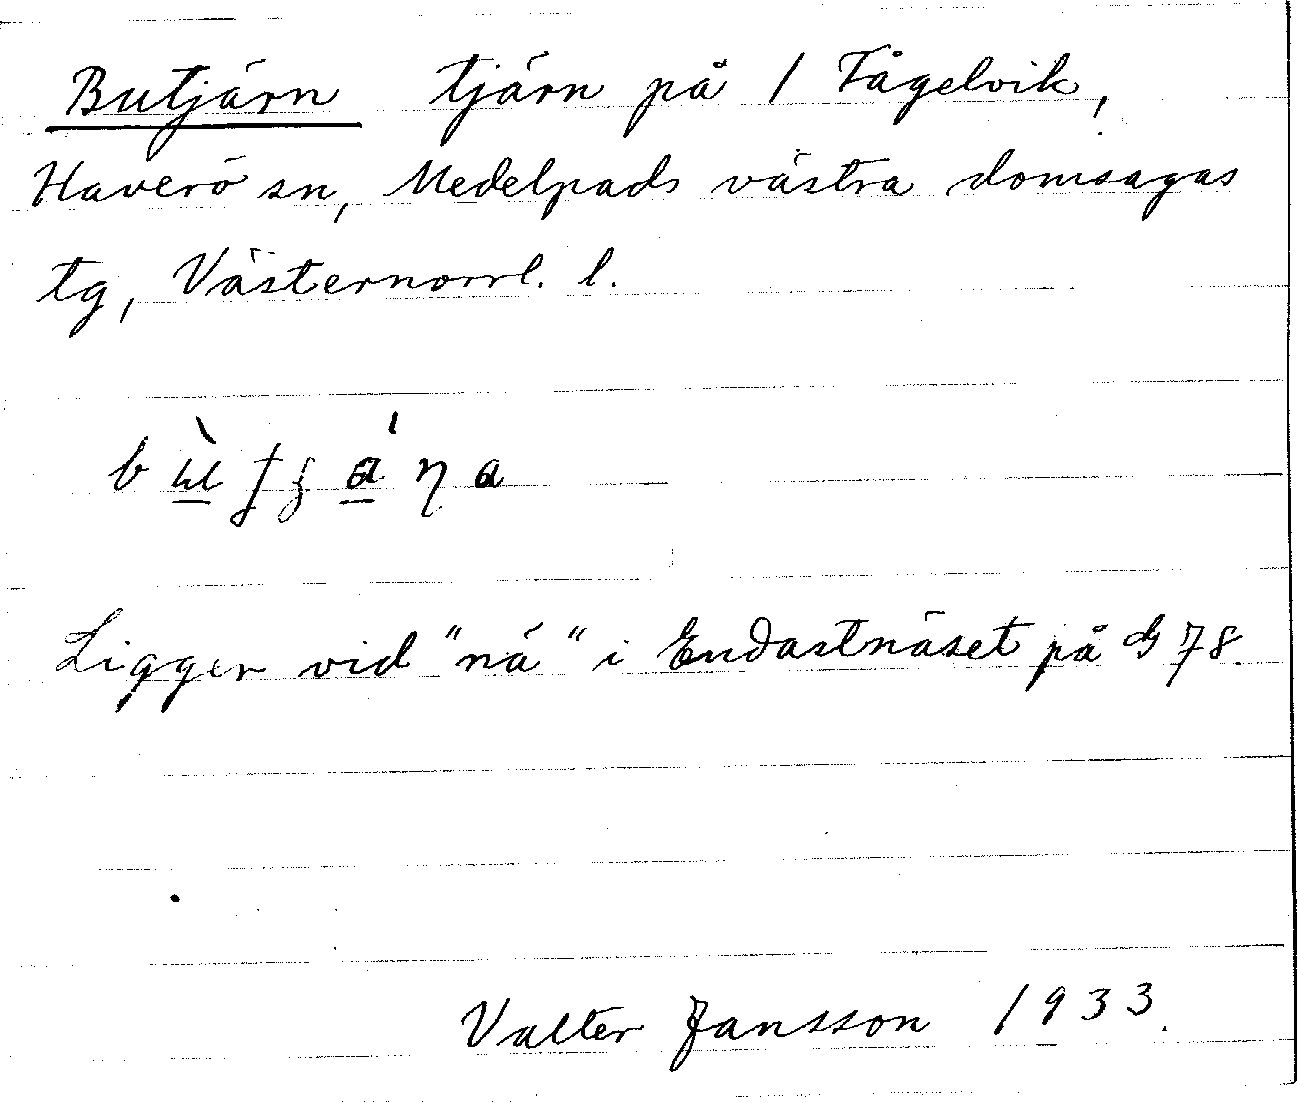 Butjärn tjärn på 1 Fågelvik,
Haverö sn, Medelpads västra domsagas
tg, Västernorrl. l.
Ligger vid "nä" i Endastnäset på G 78.
Valter Jansson 1933.